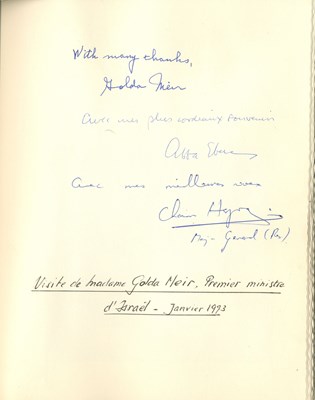 With many thanks,
Golda Meir
Avec mes plus cordiaux souvenirs
Abba Eban
avec mes meilleurs vœux
Chaim Herzog
Maj - General (Res)
Visite de madame Golda Meir, Premier ministre
d'Israël - Janvier 1973